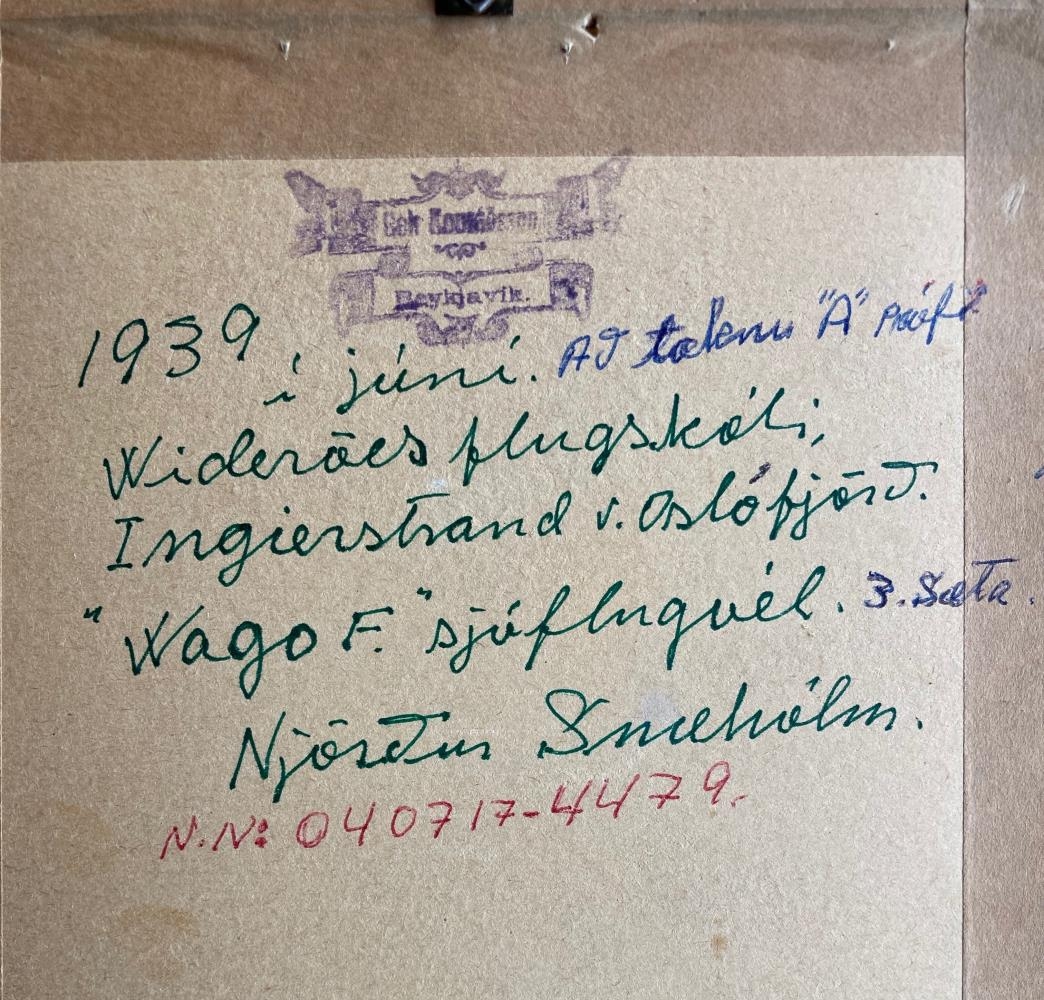 Reykjavik.
1939 í júní. AÐ teknu "A" Prófi
Wideröes flugskóli,
Ingierstrand v. Oslófjörð.
"Wago F." sjóflugvél. 3. Sæta.
Njörður Snæhólm.
N.N: 040717-4479.